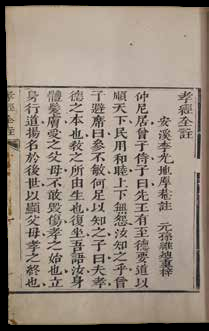 孝經全註
安溪李光地厚菴註 元孫維迪重梓
仲尼居曾子侍子曰先王有至德要道以
順天下民用和睦上下無怨汝知之乎曾
子避席曰參不敏何足以知之子曰夫孝
德之本也教之所由生也復坐吾語汝身
體髮膚受之父母不敢毀傷孝之始也立
身行道揚名於後世以顯父母孝之終也
孝經全註